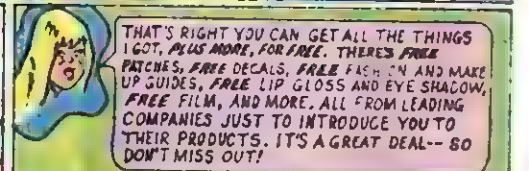 THAT'S RIGHT YOU CAN GET ALL THE THINGS
I GOT, PLUS MORE, FOR FREE. THERE'S FREE
PATCHES, FREE DECALS, FREE FASHION AND MAKE
UP GUIDES, FREE LIP GLOSS AND EYE SHADOW,
FREE FILM, AND MORE. ALL FROM LEADING
COMPANIES JUST TO INTRODUCE YOU TO
THEIR PRODUCTS. IT'S A GREAT DEAL-- SO
DON'T MISS OUT!